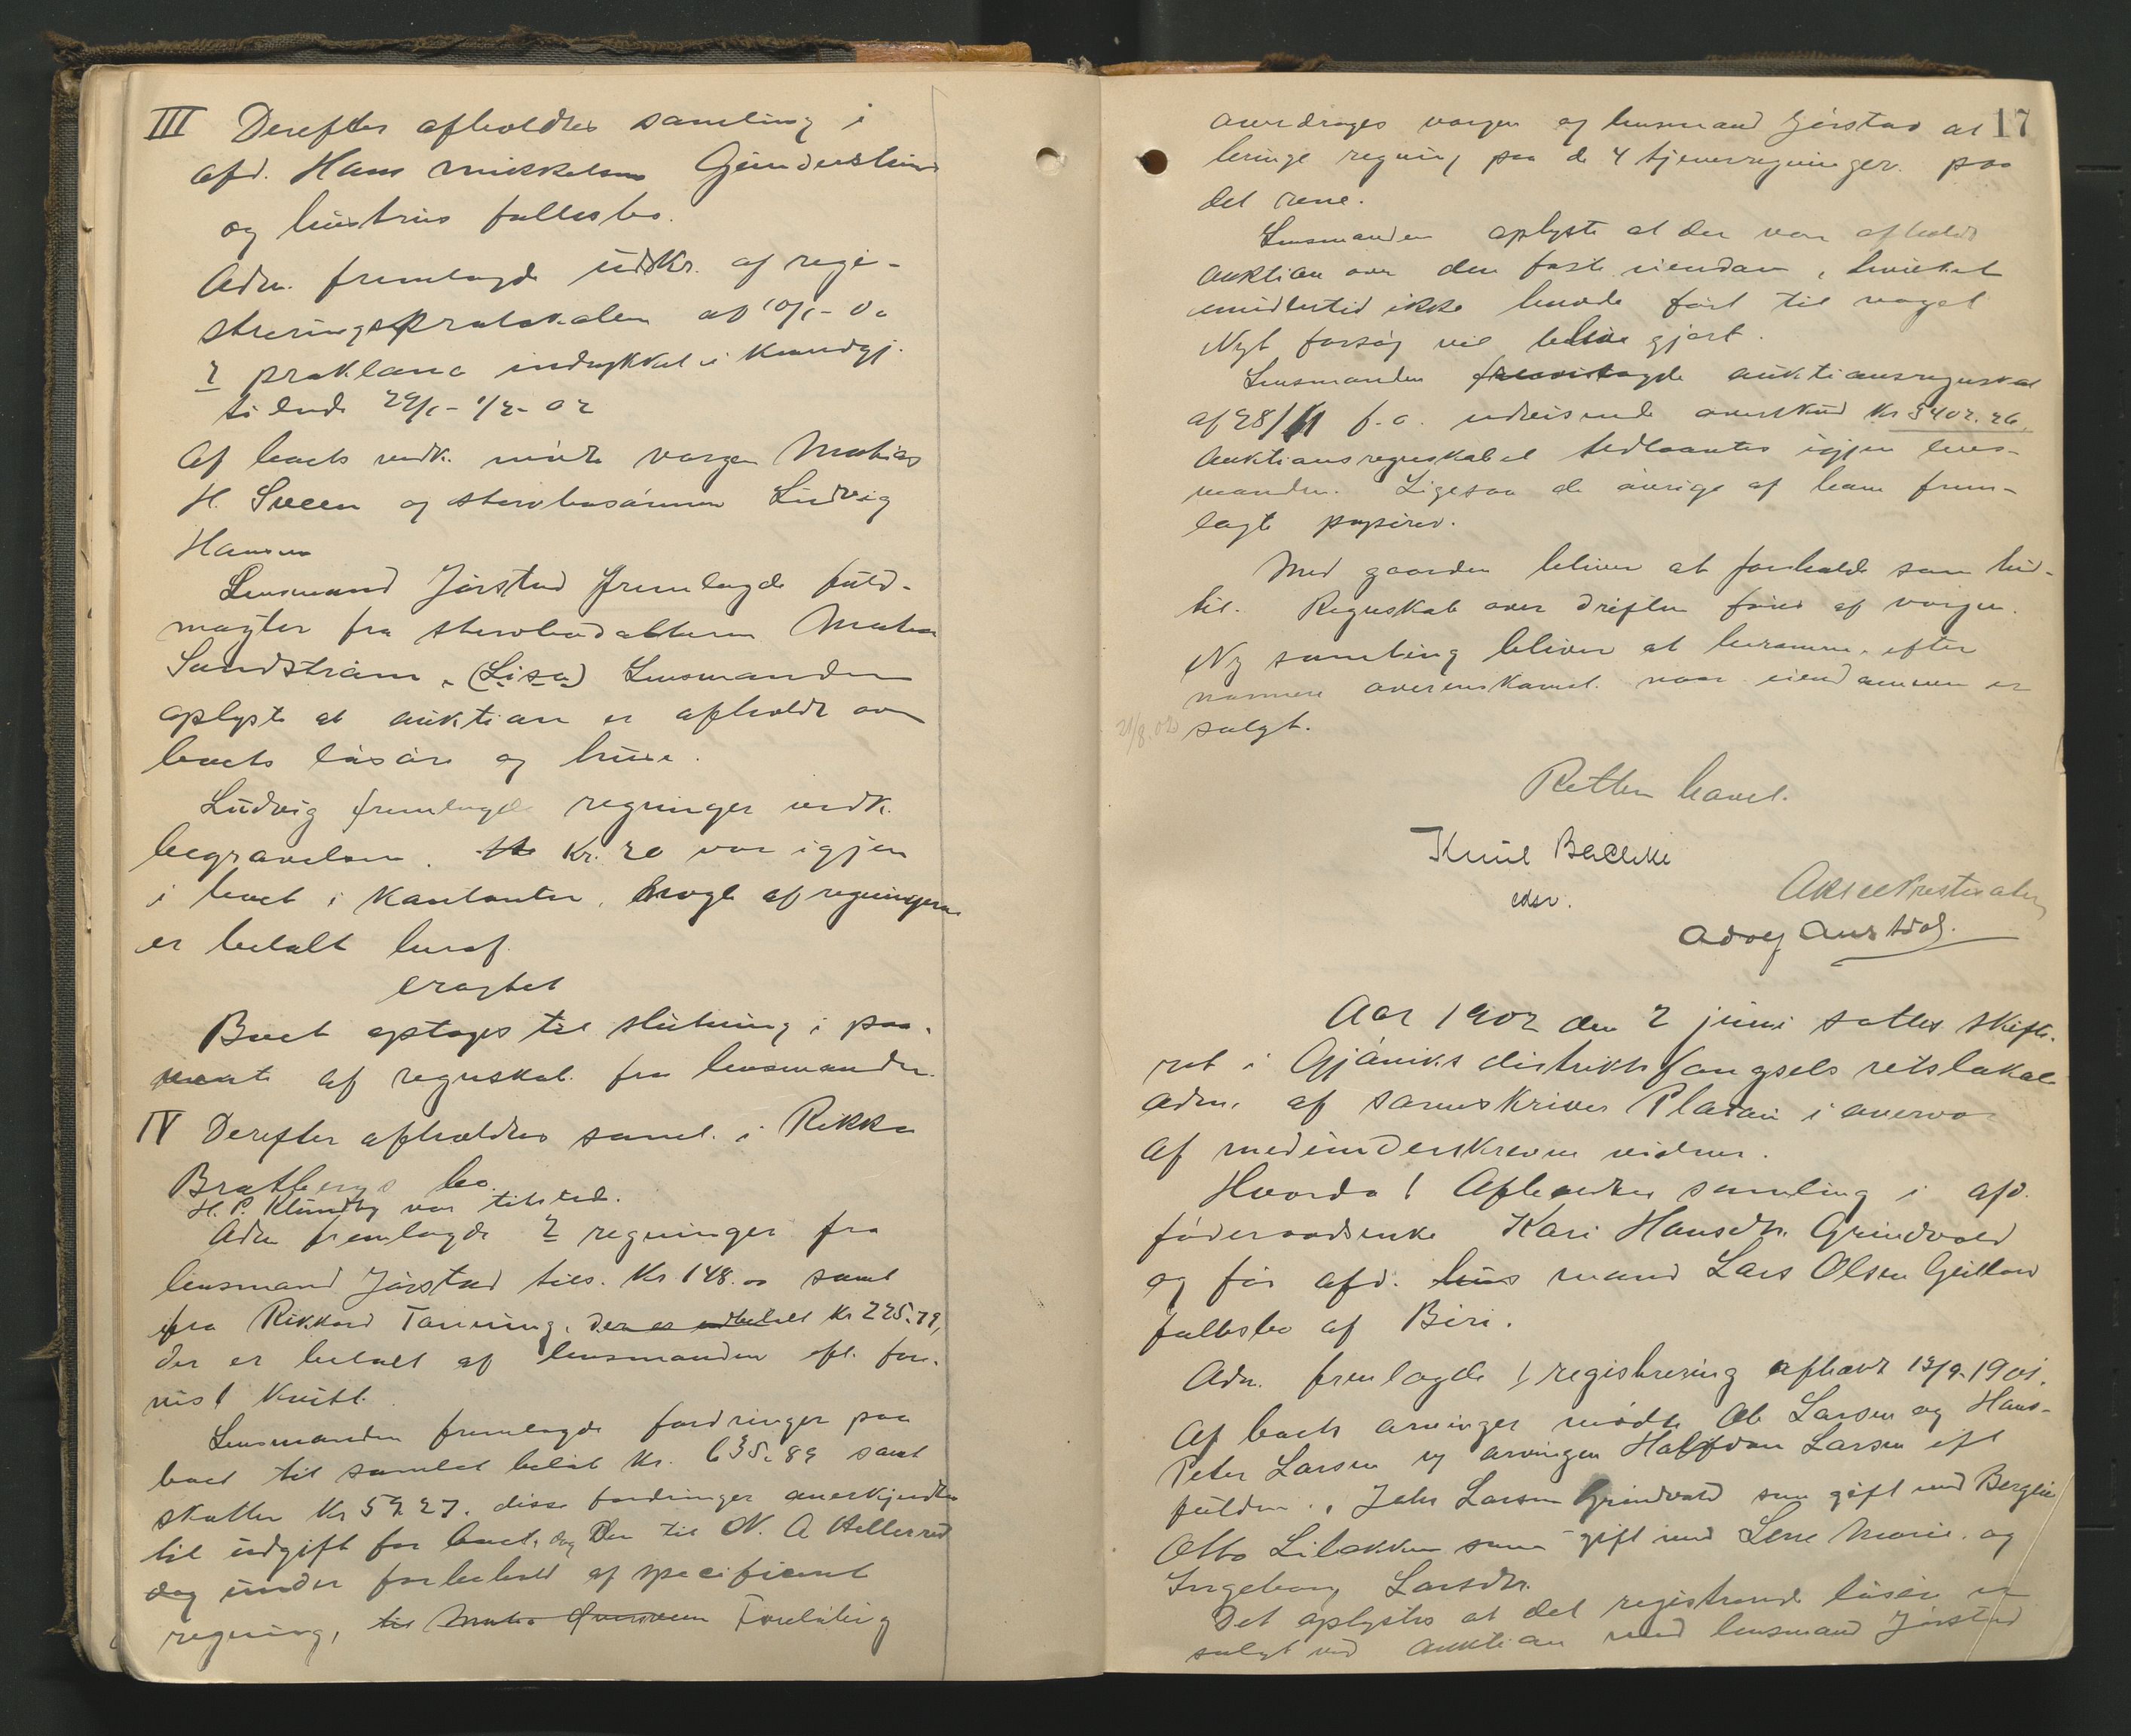 III Derefter afholdtes samling i
afd. Hans Mikkelsen
og hustrus fællesbo.
Adm. fremlagde udskr. af regi-
streringsprotokollen af 10/1-02
2 proklama indrykket i Kundgj.
tidende 29/1 - 1/2- 02
Af boets vedk. mødte vergen Mathias
H. Sveen og stervbosønnen Ludvig
Hansen
Lensmand Jørstad fremlagde fuld-
magter fra stervbodatteren
Sundstrøm, (Lisa) Lensmanden
oplyste at auktion er afholdt over
boets løsøre og huse.
Ludvig fremlagde regninger vedk.
begravelsen. Kr. 20 var igjen
i boet i kontanter, nogle af regningerne
er betalt heraf.
eragtet
Boet optages til slutning i paa-
vente af regnskab fra lensmanden.
IV Derefter afholdtes saml. i Rikka
Bratbergs bo.
H. P. Klundby var tilsted.
Adm fremlagde 2 regninger fra
lensmand Jørstad tils. Kr 148.00 samt
fra Rikkard Tønning. Der er udbetalt Kr 225.79,
der er betalt af lensmanden efl. fore-
vist kvitt.
Lensmanden fremlagde fordringer paa
boet til samlet beløb Kr. 635.89 samt
skatter Kr 59.27. disse fordringer anerkjendtes
til udgift for boet, dog den til N. A. Hellerud
dog under forbehold af specificeret
regning, Foreløbig
17
overdrages vergen og lensmand Jørstad at
bringe regning paa de 4 tjenerregninger paa
det rene.
Lensmanden oplyste at der var afholdt
auktion over den faste eiendom, hvilket
imidlertid ikke havde ført til noget
Nyt forsøg vil blive gjort.
Lensmanden fremlagde auktionsregnskab
af 28/11 f.a. udvisende overskud Kr 3402.26.
Auktionsregnskabet udlaantes igjen lens-
manden. Ligesaa de øvrige af ham frem-
lagte papirer.
Med gaarden bliver at forholde som hid-
til. Regnskab over driften føres af vergen.
Ny samling bliver at beramme efter
nærmere overenskomst naar eiendommen er
21/8.02 solgt.
Retten hævet.
Knut
edsv.
Adolf Austdal.
Aar 1902 den 2 juni sattes skifte-
ret i Gjøviks distriktsfængsels retslokale
adm. af sorenskriver Platou i overvær
af medunderskrevne vidner.
Hvorda 1 Afholdtes samling i afd.
føderaadsenke Kari Hansdtr. Grindvold
og før afd. mand Lars Olsen
fællesbo af Biri.
Adm. fremlagde 1 registrering afholdt 13/9.1901.
Af boets arvinger mødte Ole Larsen og Hans-
Peter Larsen og arvingen Halfdan Larsen efl
fuldm., Johs Larsen Grindvold som gift med
Otto Libakken som gift med Lene Marie og
Ingeborg Larsdtr.
Det oplystes at det registrerede løsøre er
solgt ved auktion ved lensmand Jørstad